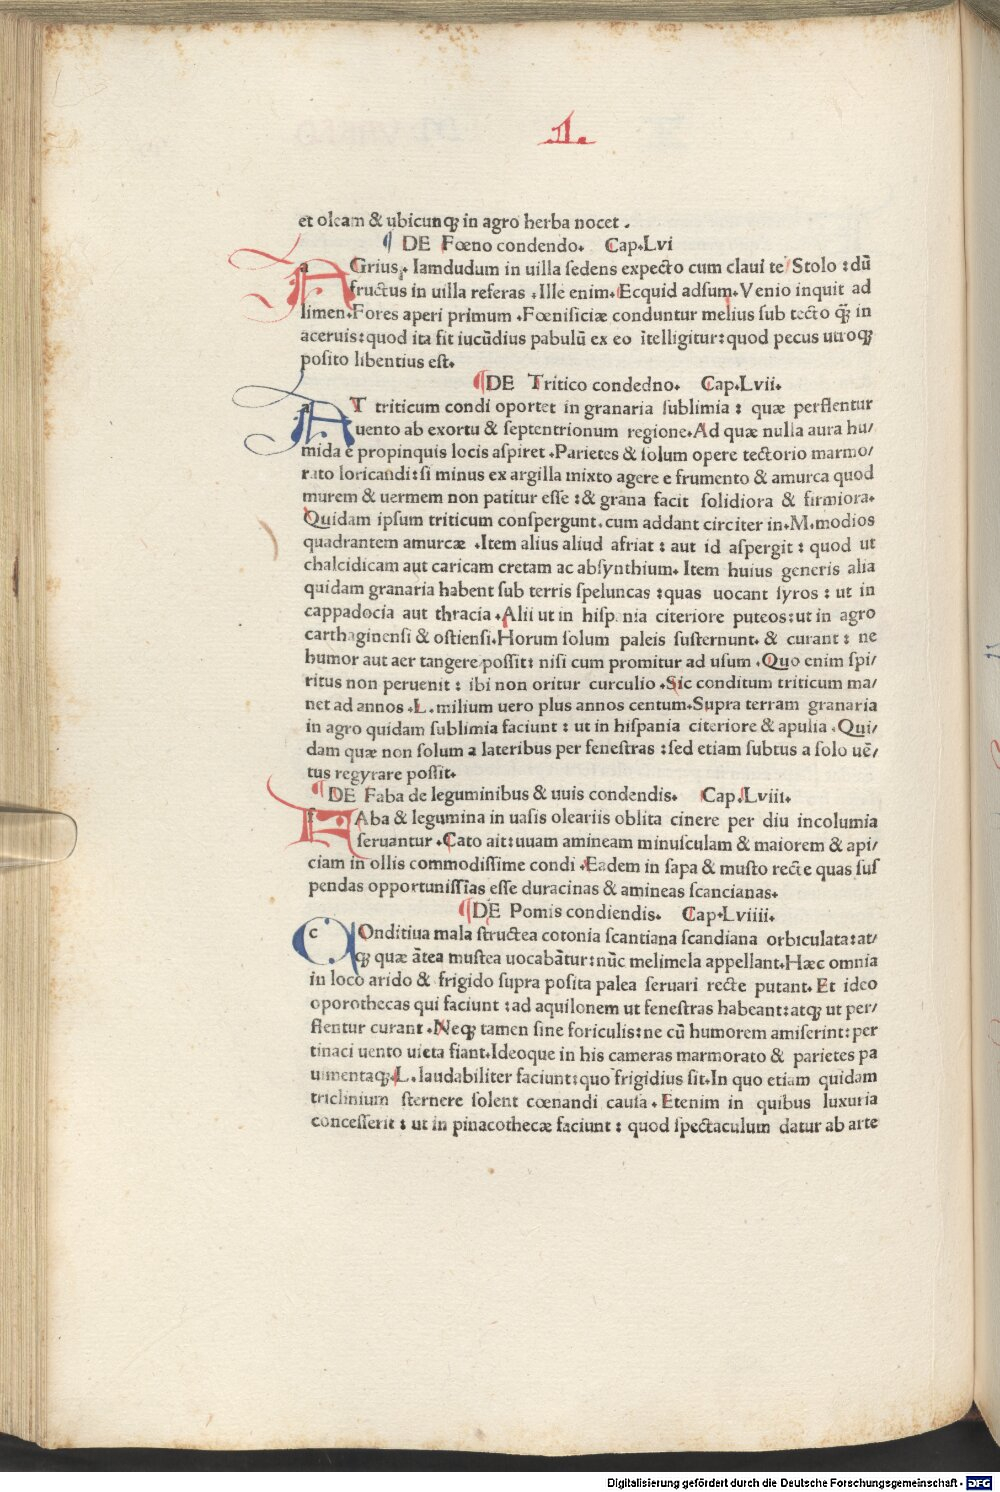 .II.
et oleam & ubicunqꝫ in agro herba nocet .
¶ DE Fœno condendo. Cap.Lvi
AGrius. Iamdudum in uilla ſedens expecto cum claui te Stolo : dū
fructus in uilla referas . Ille enim. Ecquid adſum. Venio inquit ad
limen. Fores aperi primum . Fœniſiciæ conduntur melius ſub tecto q̃ꝫ in
aceruis: quod ita fit iucūdius pabulū ex eo ītelligitur: quod pecus utroqꝫ
poſito libentius eſt.
¶DE Tritico condedno. Cap.Lvii.
AT triticum condi oportet in granaria ſublimia : quæ perflentur
uento ab exortu & ſeptentrionum regione. Ad quæ nulla aura hu/
mida e propinquis locis aſpiret . Parietes & ſolum opere tectorio marmo/
rato loricandi: ſi minus ex argilla mixto agere e frumento & amurca quod
murem & uermem non patitur eſſe : & grana facit ſolidiora & firmiora.
Quidam ipſum triticum conſpergunt. cum addant circiter in. M. modios
quadrantem amurcæ . Item alius aliud afriat : aut id aſpergit : quod ut
chalcidicam aut caricam cretam ac abſynthium. Item huius generis alia
quidam granaria habent ſub terris ſpeluncas : quas uocant ſyros : ut in
cappadocia aut thracia . Alii ut in hiſpania citeriore puteos: ut in agro
carthaginenſi & oſtienſi. Horum ſolum paleis ſuſternunt. & curant : ne
humor aut aer tangere poſſit: niſi cum promitur ad uſum . Quo enim ſpi/
ritus non peruenit : ibi non oritur curculio . Sic conditum triticum ma/
net ad annos .L. milium uero plus annos centum. Supra terram granaria
in agro quidam ſublimia faciunt : ut in hiſpania citeriore & apulia . Qui/
dam quæ non ſolum a lateribus per feneſtras : ſed etiam ſubtus a ſolo uē/
tus regyrare poſſit.
¶ DE Faba de leguminibus & uuis condendis. Cap.Lviii.
FAba & legumina in uaſis oleariis oblita cinere per diu incolumia
ſeruantur . Cato ait: uuam amineam minuſculam & maiorem & api/
ciam in ollis commodiſſime condi . Eadem in ſapa & muſto recte quas ſuſ
pendas opportuniſſias eſſe duracinas & amineas ſcancianas.
¶DE Pomis condiendis. Cap.Lviiii.
COnditiua mala ſtructea cotonia ſcantiana ſcandiana orbiculata: at/
qꝫ quæ ātea muſtea uocabātur: nūc melimela appellant. Hæc omnia
in loco arido & frigido ſupra poſita palea ſeruari recte putant. Et ideo
oporothecas qui faciunt : ad aquilonem ut feneſtras habeant: atqꝫ ut per/
flentur curant . Neqꝫ tamen ſine foriculis: ne cū humorem amiſerint: per
tinaci uento uieta fiant. Ideoque in his cameras marmorato & parietes pa
uimentaqꝫ. L. laudabiliter faciunt: quo frigidius ſit. In quo etiam quidam
triclinium ſternere ſolent cœnandi cauſa . Etenim in quibus luxuria
conceſſerit : ut in pinacothecæ faciunt : quod ſpectaculum datur ab arte
Digitalisierung gefördert durch die Deutsche Forschungsgemeinschaft - DFG